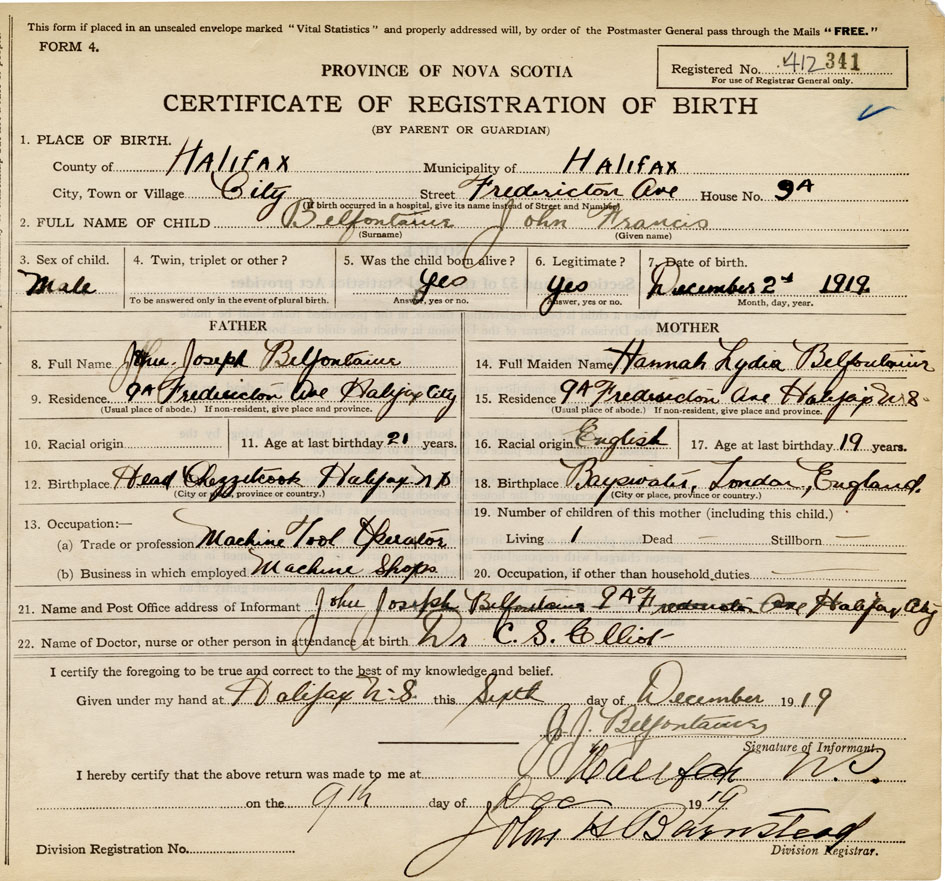 This form if placed in an unsealed envelope marked "Vital Statistics" and properly addressed will, by order of the Postmaster General pass through the Mails "FREE."
FORM 4.
PROVINCE OF NOVA SCOTIA
Registered No. 412 341
For use of Registrar General only.
CERTIFICATE OF REGISTRATION OF BIRTH
(BY PARENT OR GUARDIAN)
1. PLACE OF BIRTH.
County of Halifax Municipality of Halifax
City, Town or Village City Street Fredericton Ave House No. 9A
(If birth occurred in a hospital, give its name instead of Street and Number)
2. FULL NAME OF CHILD Belfontaine John Francis
(Surname) (Given name)
3. Sex of child. 4. Twin, triplet or other? 5. Was the child born alive? 6. Legitimate? 7. Date of birth.
Male yes yes December 2nd 1919
To be answered only in the event of plural birth. Answer, yes or no. Answer, yes or no. Month, day, year.
FATHER
8. Full Name John Joseph Belfontaine
9. Residence. 9A Fredericton Ave Halifax City
(Usual place of abode.) If non-resident, give place and province.
10. Racial origin 11. Age at last birthday 21 years.
12. Birthplace Head Chezzetcook Halifax
(City or place, province or country.)
13. Occupation:—
(a) Trade or profession Machine Tool Operator
(b) Business in which employed Machine Shops
MOTHER
14. Full Maiden Name Hannah Lydia Belfontaine
15. Residence 9A Fredericton Ave Halifax N.S.
(Usual place of abode.) If non-resident, give place and province.
16. Racial origin English 17. Age at last birthday 19 years.
18. Birthplace Bayswater, London, England.
(City or place, province or country.)
19. Number of children of this mother (including this child.)
Living 1 Dead — Stillborn —
20. Occupation, if other than household duties —
21. Name and Post Office address of Informant John Joseph Belfontaine 9A Fredericton Ave Halifax City
22. Name of Doctor, nurse or other person in attendance at birth Dr C. S. Elliot
I certify the foregoing to be true and correct to the best of my knowledge and belief.
Given under my hand at Halifax N.S. this Sixth day of December 1919
J. J. Belfontaine
Signature of Informant.
I hereby certify that the above return was made to me at Halifax N.S.
on the 9th day of Dec 1919
John H Barnstead
Division Registration No. Division Registrar.